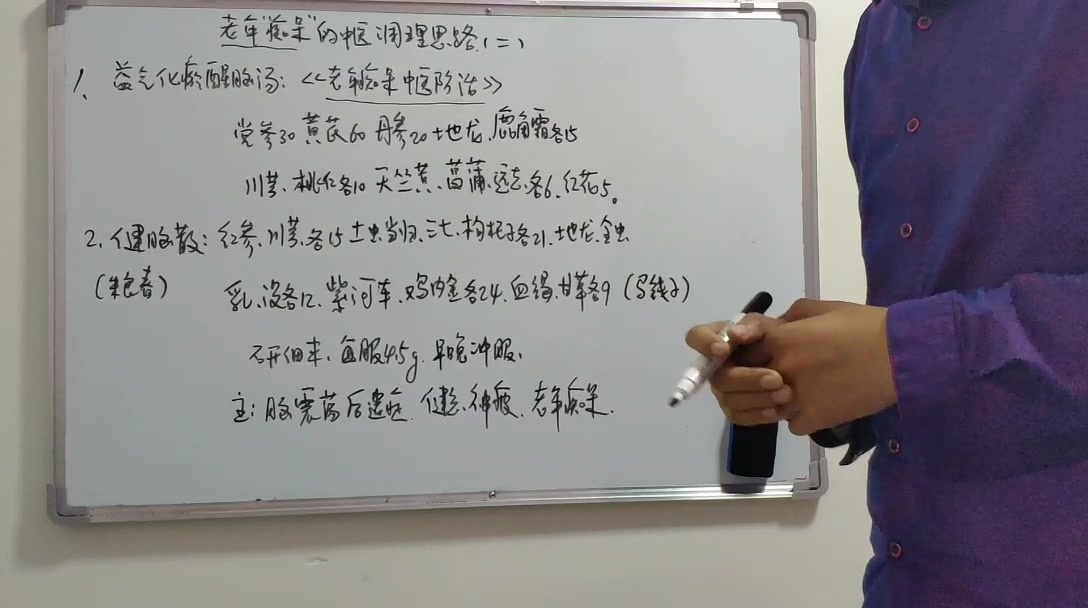 老年"痴呆"的中医调理思路(二)
1、益气化瘀醒脑汤:<<老年痴呆中医防治>>
党参30 黄芪60 丹参20 地龙、鹿角霜各15
川芎、桃仁各10 天竺黄、菖蒲、远志各6、红花5。
2、健脑散:红参、川芎各15 土虫、当归、三七、枸杞子各21、地龙、全虫
(朱良春) 乳、没各12、紫河车、鸡内金各24、血竭、甘草各9 (马钱子)
研细末、每服4.5g 早晚冲服、
主:脑震荡后遗症、健忘、神疲、老年痴呆.